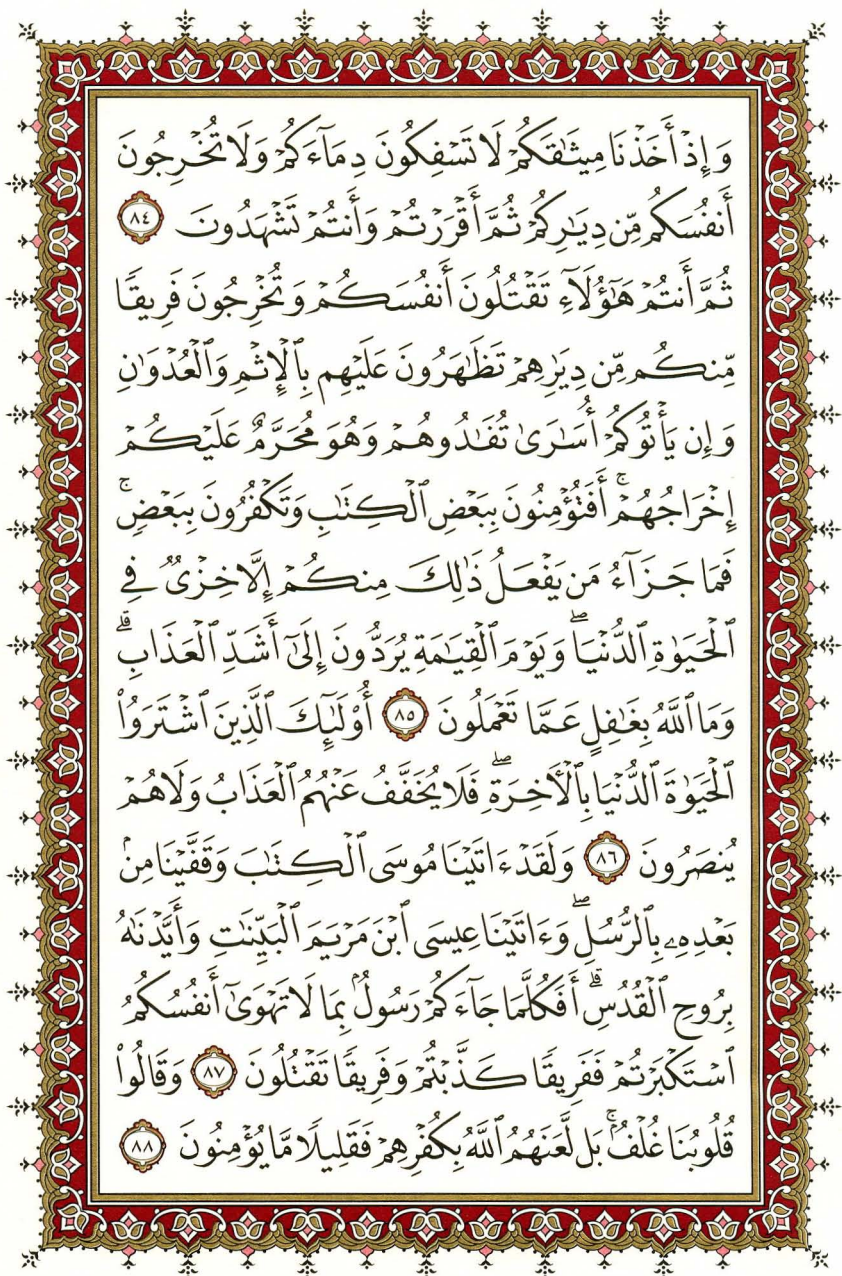 وَإِذْ أَخَذْنَا مِيثَٰقَكُمْ لَا تَسْفِكُونَ دِمَآءَكُمْ وَلَا تُخْرِجُونَ
أَنفُسَكُم مِّن دِيَٰرِكُمْ ثُمَّ أَقْرَرْتُمْ وَأَنتُمْ تَشْهَدُونَ ٨٤
ثُمَّ أَنتُمْ هَٰٓؤُلَآءِ تَقْتُلُونَ أَنفُسَكُمْ وَتُخْرِجُونَ فَرِيقًا
مِّنكُم مِّن دِيَٰرِهِمْ تَظَٰهَرُونَ عَلَيْهِم بِٱلْإِثْمِ وَٱلْعُدْوَٰنِ
وَإِن يَأْتُوكُمْ أُسَٰرَىٰ تُفَٰدُوهُمْ وَهُوَ مُحَرَّمٌ عَلَيْكُمْ
إِخْرَاجُهُمْ ۚ أَفَتُؤْمِنُونَ بِبَعْضِ ٱلْكِتَٰبِ وَتَكْفُرُونَ بِبَعْضٍ ۚ
فَمَا جَزَآءُ مَن يَفْعَلُ ذَٰلِكَ مِنكُمْ إِلَّا خِزْىٌ فِى
ٱلْحَيَوٰةِ ٱلدُّنْيَا ۖ وَيَوْمَ ٱلْقِيَٰمَةِ يُرَدُّونَ إِلَىٰٓ أَشَدِّ ٱلْعَذَابِ ۗ
وَمَا ٱللَّهُ بِغَٰفِلٍ عَمَّا تَعْمَلُونَ ٨٥ أُو۟لَٰٓئِكَ ٱلَّذِينَ ٱشْتَرَوُا۟
ٱلْحَيَوٰةَ ٱلدُّنْيَا بِٱلْءَاخِرَةِ ۖ فَلَا يُخَفَّفُ عَنْهُمُ ٱلْعَذَابُ وَلَا هُمْ
يُنصَرُونَ ٨٦ وَلَقَدْ ءَاتَيْنَا مُوسَى ٱلْكِتَٰبَ وَقَفَّيْنَا مِنۢ
بَعْدِهِۦ بِٱلرُّسُلِ ۖ وَءَاتَيْنَا عِيسَى ٱبْنَ مَرْيَمَ ٱلْبَيِّنَٰتِ وَأَيَّدْنَٰهُ
بِرُوحِ ٱلْقُدُسِ ۗ أَفَكُلَّمَا جَآءَكُمْ رَسُولٌۢ بِمَا لَا تَهْوَىٰٓ أَنفُسُكُمُ
ٱسْتَكْبَرْتُمْ فَفَرِيقًا كَذَّبْتُمْ وَفَرِيقًا تَقْتُلُونَ ٨٧ وَقَالُوا۟
قُلُوبُنَا غُلْفٌۢ ۚ بَل لَّعَنَهُمُ ٱللَّهُ بِكُفْرِهِمْ فَقَلِيلًا مَّا يُؤْمِنُونَ ٨٨